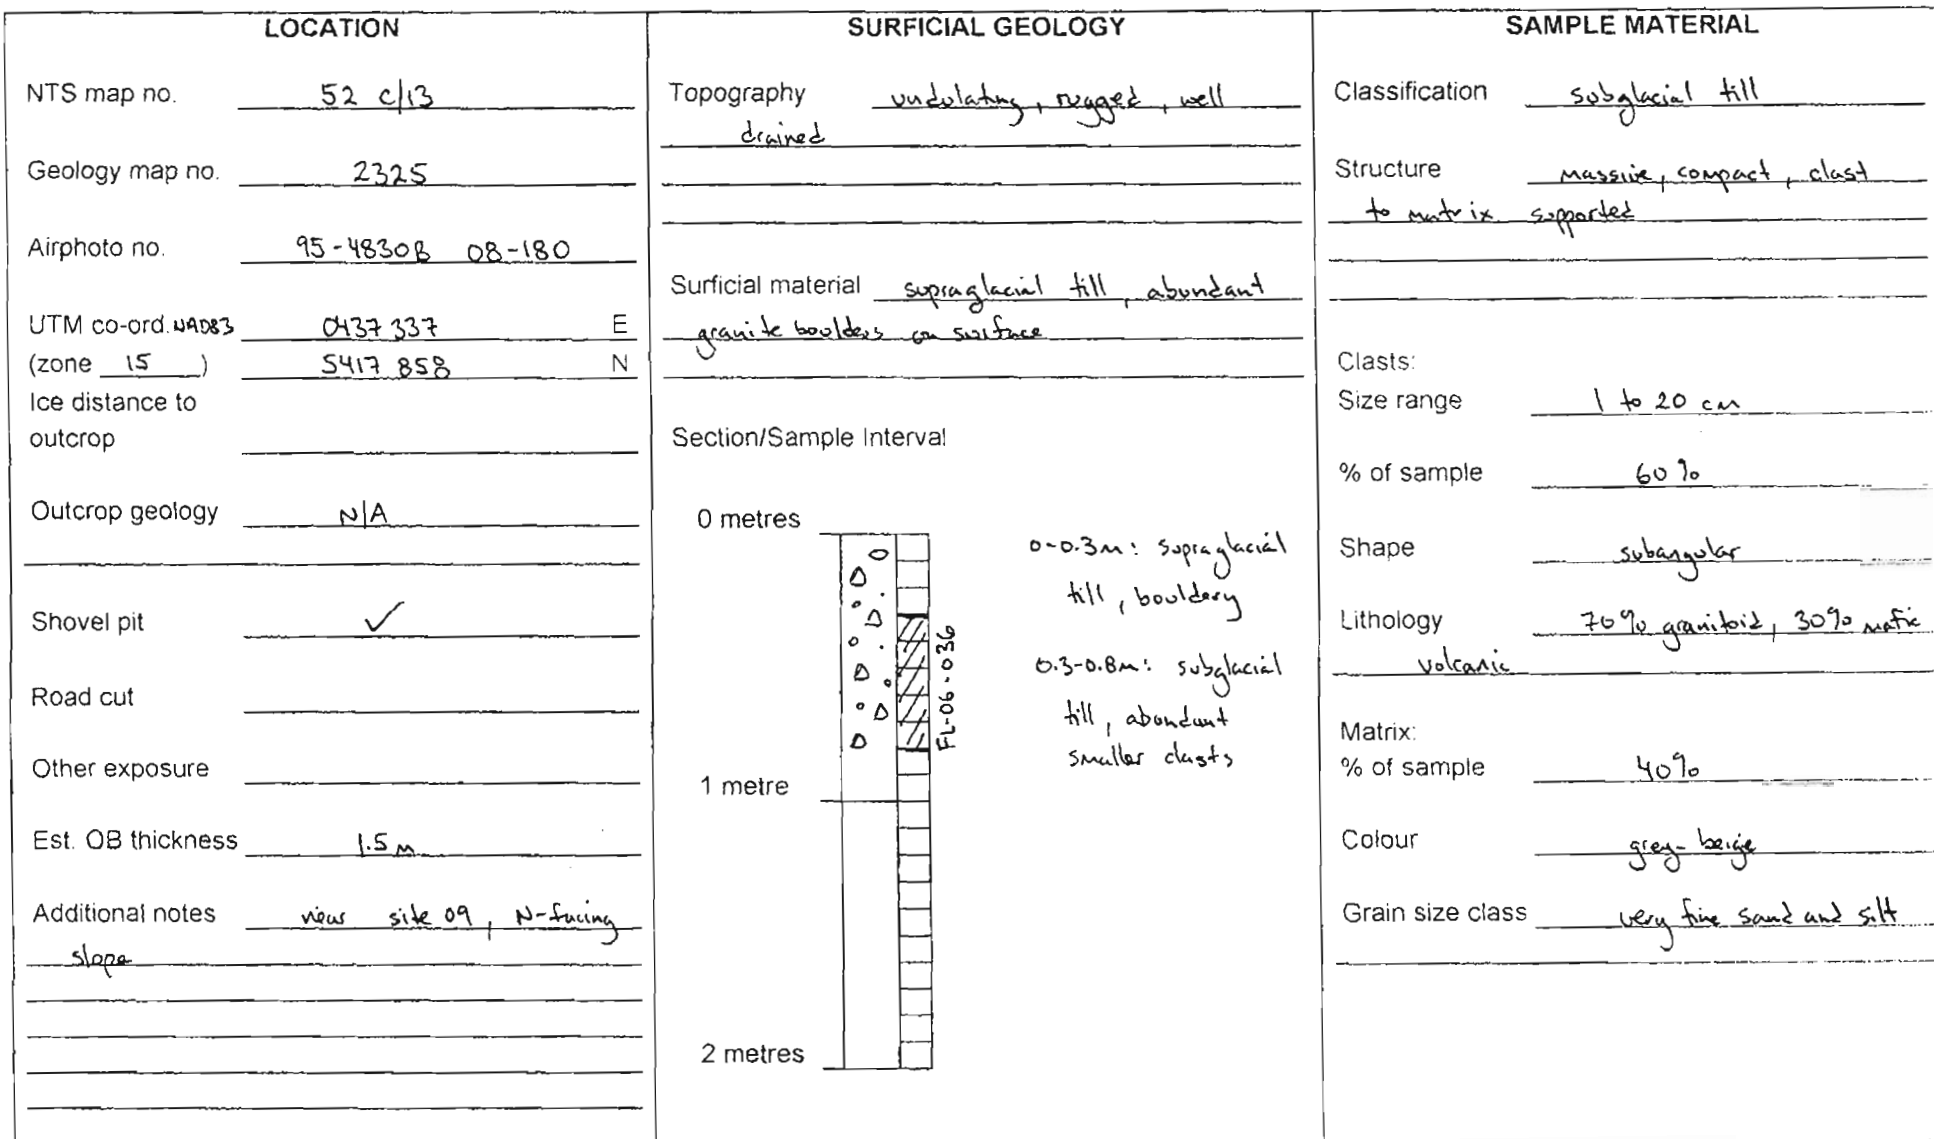 LOCATION
NTS map no. 52 c/13
Geology map no. 2325
Airphoto no. 95-4830B 08-180
UTM co-ord. NAD83 0437 337 E
(zone 15 ) 5417 858 N
Ice distance to
outcrop
Outcrop geology N/A
Shovel pit ✓
Road cut
Other exposure
Est. OB thickness 1.5 m
Additional notes near site 09, N-facing
slope
SURFICIAL GEOLOGY
Topography undulating, rugged, well
drained
Surficial material supraglacial till, abundant
granite boulders on surface
Section/Sample Interval
0 metres
1 metre
2 metres
FL-06-036
0-0.3m: supraglacial
till, bouldery
0.3-0.8m: subglacial
till, abundant
smaller clasts
SAMPLE MATERIAL
Classification subglacial till
Structure massive, compact, clast
to matrix supported
Clasts:
Size range 1 to 20 cm
% of sample 60%
Shape subangular
Lithology 70% granitoid, 30% mafic
volcanic
Matrix:
% of sample 40%
Colour grey-beige
Grain size class very fine sand and silt